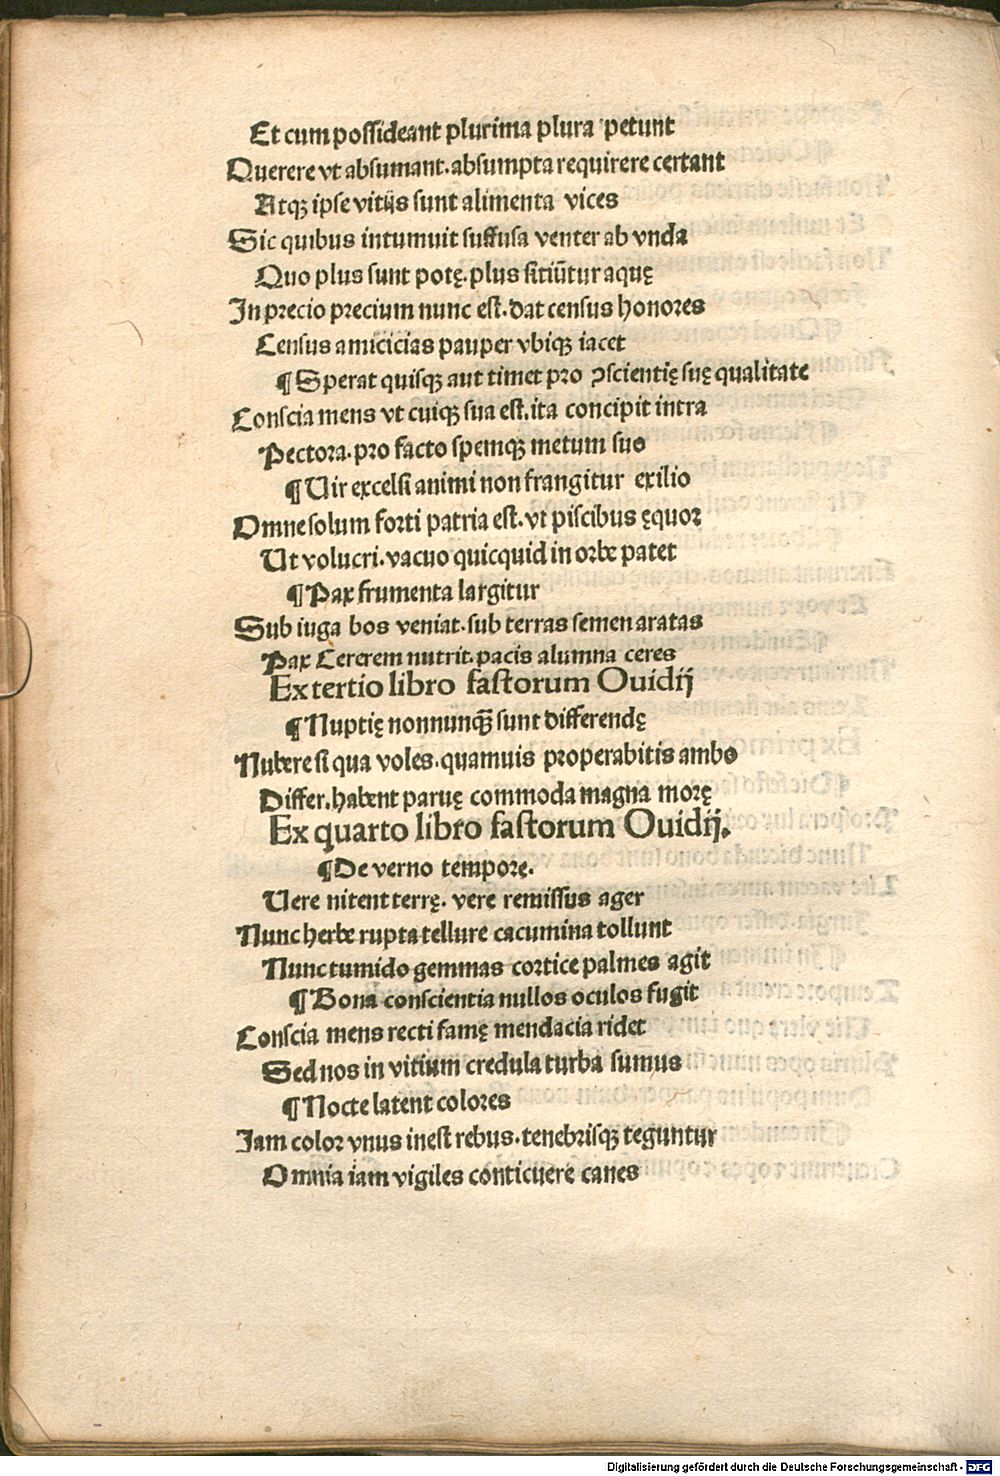 Et cum possideant plurima plura petunt
Querere vt absumant. absumpta requirere certant
Atqꝫ ipse vitijs sunt alimenta vices
Sic quibus intumuit suffusa venter ab vnda
Quo plus sunt potę. plus sitiūtur aquę
In precio precium nunc est. dat census honores
Census amicicias pauper vbiqꝫ iacet
¶ Sperat quisqꝫ aut timet pro ꝯscientię suę qualitate
Conscia mens vt cuiqꝫ sua est. ita concipit intra
Pectora. pro facto spemqꝫ metum suo
¶ Uir excelsi animi non frangitur exilio
Omne solum forti patria est. vt piscibus ęquor
Ut volucri. vacuo quicquid in orbe patet
¶ Pax frumenta largitur
Sub iuga bos veniat. sub terras semen aratas
Pax Cererem nutrit. pacis alumna ceres
Ex tertio libro fastorum Ouidij
¶ Nuptię nonnunqꝫ̄ sunt differendę
Nubere si qua voles. quamuis properabitis ambo
Differ. habent paruę commoda magna morę
Ex quarto libro fastorum Ouidij.
¶ De verno tempore.
Uere nitent terrę. vere remissus ager
Nunc herbe rupta tellure cacumina tollunt
Nunc tumido gemmas cortice palmes agit
¶ Bona conscientia nullos oculos fugit
Conscia mens recti famę mendacia ridet
Sed nos in vitium credula turba sumus
¶ Nocte latent colores
Iam color vnus inest rebus. tenebrisqꝫ teguntur
Omnia iam vigiles conticuere canes
Digitalisierung gefördert durch die Deutsche Forschungsgemeinschaft - DFG